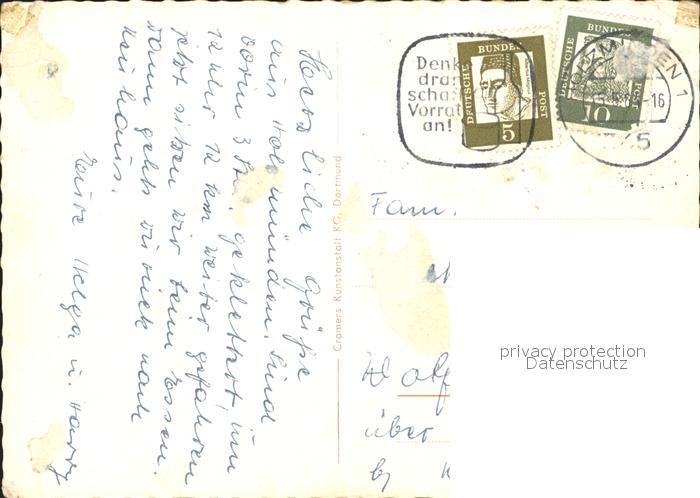 Herzliche Grüße
aus Holzminden. Sind
vorm. 3 geklettert, um
12 Uhr 12 km weiter gefahren
jetzt sitzen wir beim Essen.
Dann gehts zurück nach
neuhaus.
Eure Helga u. Harry
Cramers Kunstanstalt KG, Dortmund
Denk
dran
schaff
Vorrat
an!
DEUTSCHE
BUNDES
POST
5
DEUTSCHE
BUNDES
POST
10
EN 1
-16
5
Fam.
Wolf
über
privacy protection
Datenschutz